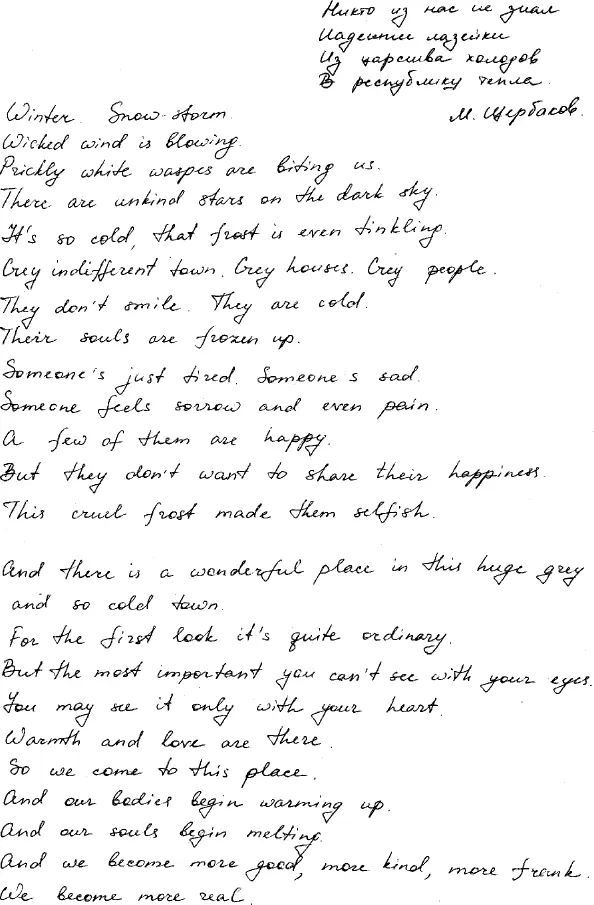 Никто из нас не знал
Надёжней лазейки
Из царства холодов
В республику тепла.
М. Щербаков.
Winter. Snow-storm.
Wicked wind is blowing.
Prickly white waspes are biting us.
There are unkind stars on the dark sky.
It's so cold, that frost is even tinkling.
Grey indifferent town. Grey houses. Grey people.
They don't smile. They are cold.
Their souls are frozen up.
Someone's just tired. Someone's sad.
Someone feels sorrow and even pain.
A few of them are happy.
But they don't want to share their happiness.
This cruel frost made them selfish.
And there is a wonderful place in this huge grey
and so cold town.
For the first look it's quite ordinary.
But the most important you can't see with your eyes.
You may see it only with your heart.
Warmth and love are there.
So we come to this place.
And our bodies begin warming up.
And our souls begin melting.
And we become more good, more kind, more frank.
We become more real.